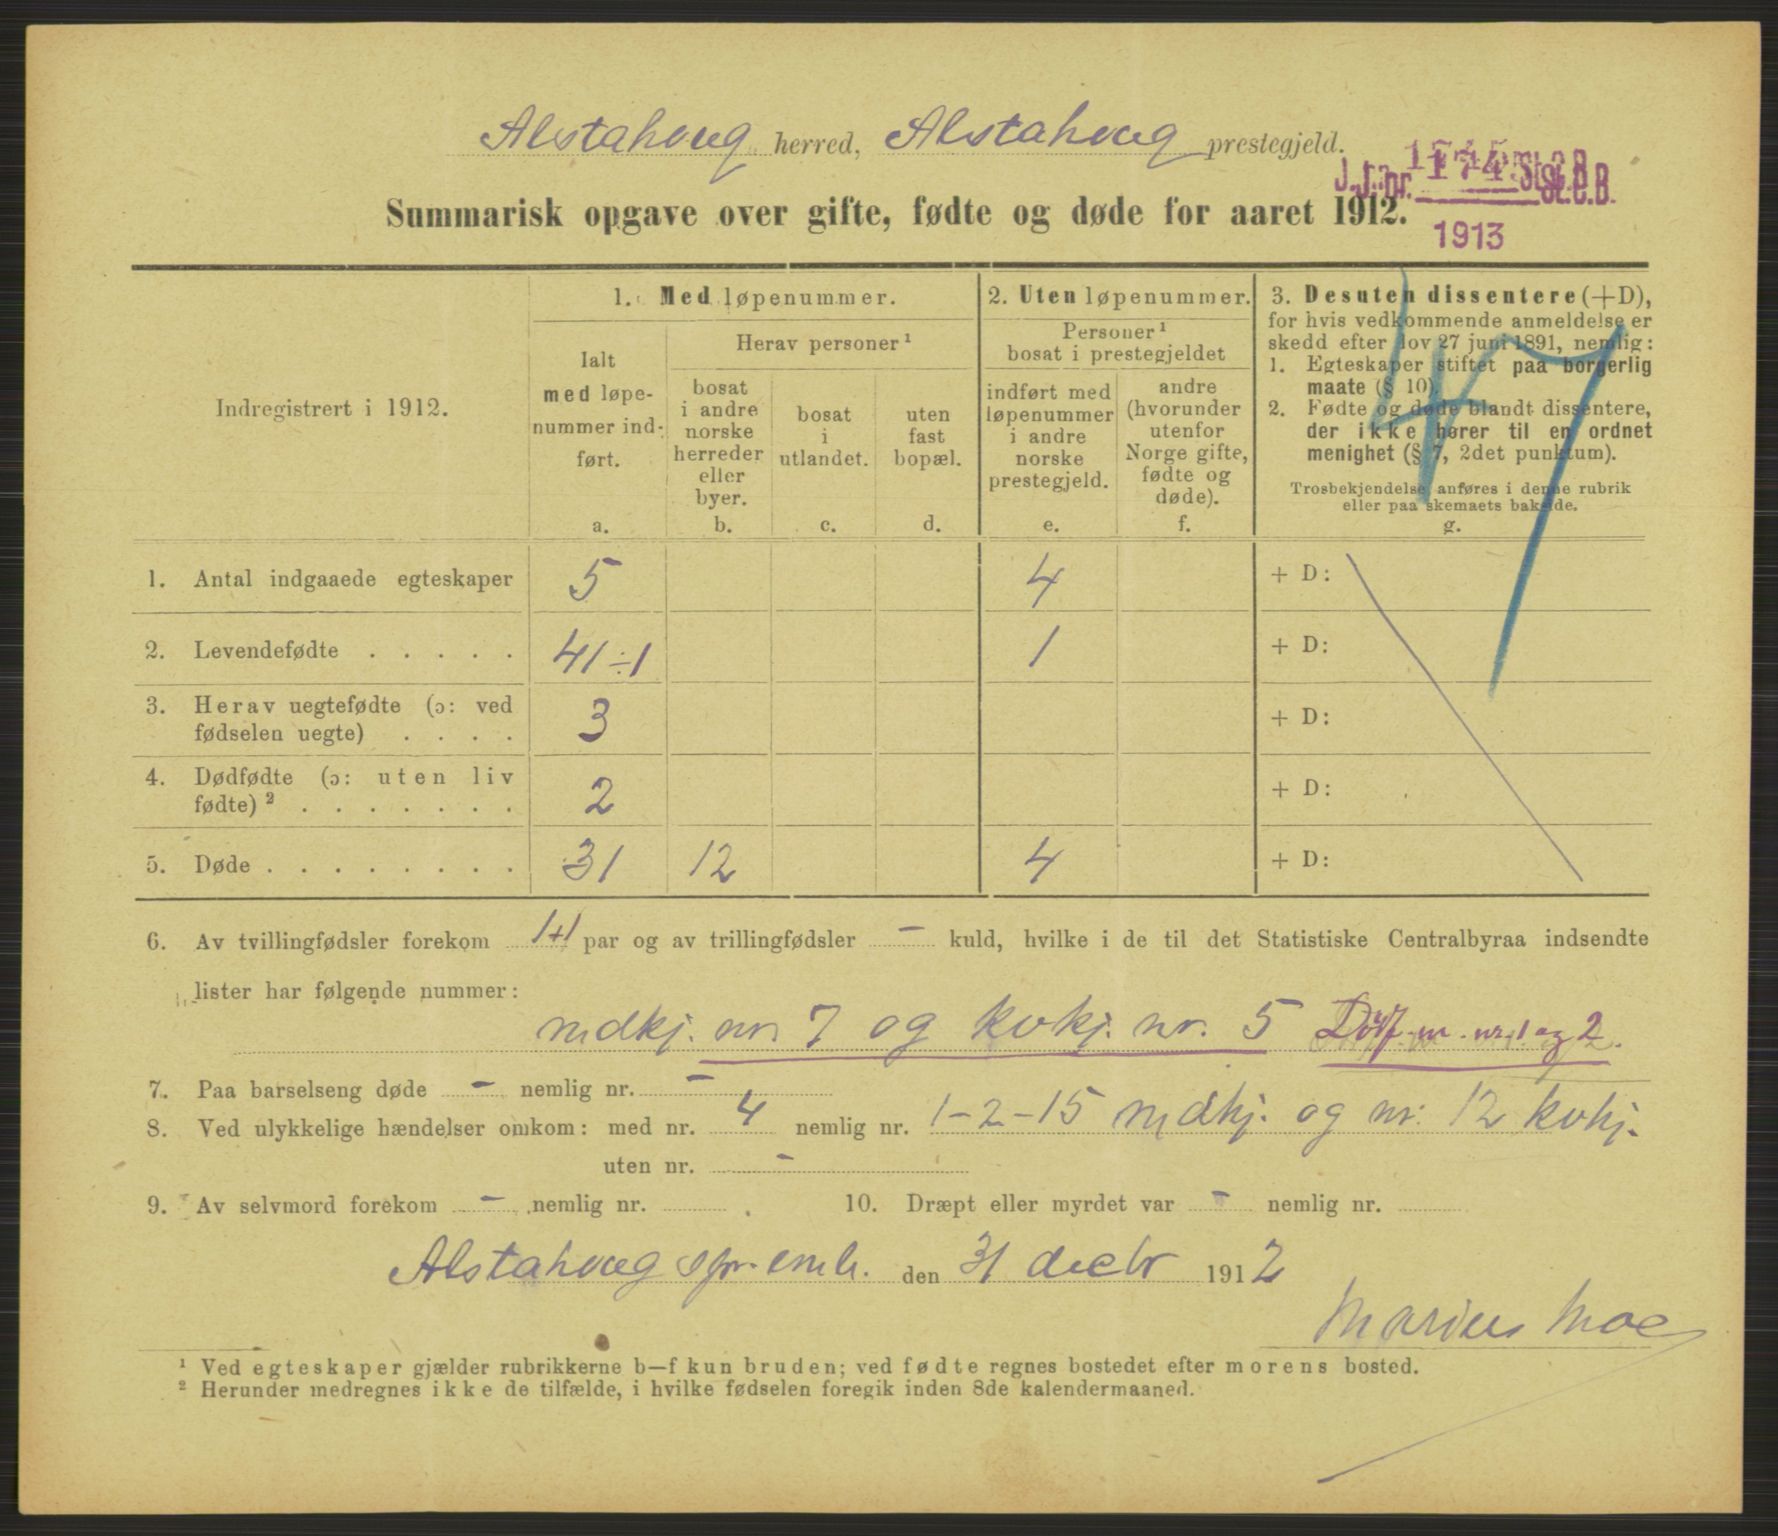 Alstahoug herred, Alstahoug prestegjeld.
J. nr. 1745 St.C.B.
1913
Summarisk opgave over gifte, fødte og døde for aaret 1912.
47
Indregistrert i 1912.
1. Med løpenummer.
Ialt
med løpe-
nummer ind-
ført.
a.
Herav personer ¹
bosat
i andre
norske
herreder
eller
byer.
b.
bosat
i
utlandet.
c.
uten
fast
bopæl.
d.
2. Uten løpenummer.
Personer ¹
bosat i prestegjeldet
indført med
løpenummer
i andre
norske
prestegjeld.
e.
andre
(hvorunder
utenfor
Norge gifte,
fødte og
døde).
f.
3. Desuten dissentere (+D),
for hvis vedkommende anmeldelse er
skedd efter lov 27 juni 1891, nemlig:
1. Egteskaper stiftet paa borgerlig
maate (§ 10).
2. Fødte og døde blandt dissentere,
der ikke hører til en ordnet
menighet (§ 7, 2det punktum).
Trosbekjendelse anføres i denne rubrik
eller paa skemaets bakside.
g.
1. Antal indgaaede egteskaper 5 4 + D:
2. Levendefødte . . . . . 41÷1 1 + D:
3. Herav uegtefødte (ɔ: ved
fødselen uegte) . . . . 3 + D:
4. Dødfødte (ɔ: uten liv
fødte) ² . . . . . . . 2 + D:
5. Døde . . . . . . . . 31 12 4 + D:
6. Av tvillingfødsler forekom 1+1 par og av trillingfødsler - kuld, hvilke i de til det Statistiske Centralbyraa indsendte
lister har følgende nummer:
mdkj. nr. 7 og kvkj. nr. 5 Dødf. m. nr. 1 og 2.
7. Paa barselseng døde - nemlig nr. -
8. Ved ulykkelige hændelser omkom: med nr. 4 nemlig nr. 1-2-15 mdkj. og nr. 12 kvkj.
uten nr. -
9. Av selvmord forekom - nemlig nr. 10. Dræpt eller myrdet var - nemlig nr.
Alstahoug spr.emb. den 31 decbr 1912
Marius Moe
¹ Ved egteskaper gjælder rubrikkerne b—f kun bruden; ved fødte regnes bostedet efter morens bosted.
² Herunder medregnes ikke de tilfælde, i hvilke fødselen foregik inden 8de kalendermaaned.